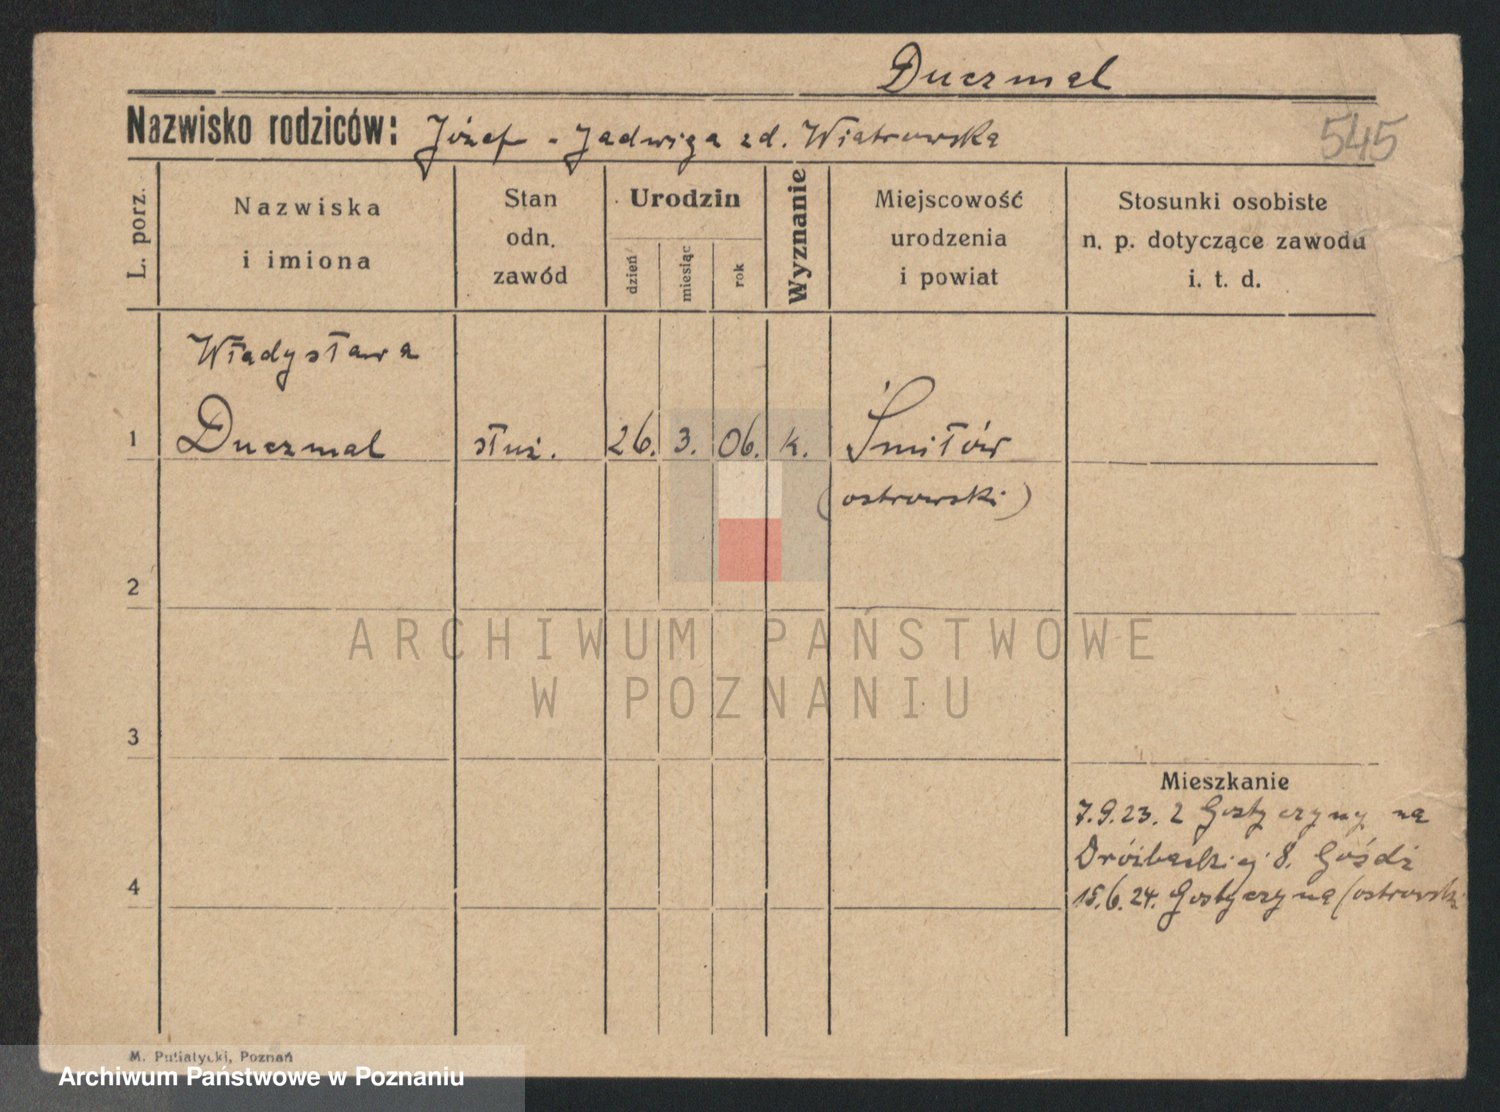 Duczmal
Nazwisko rodziców: Józef - Jadwiga zd. Wiatrowska
545
L. porz.
Nazwiska
i imiona
Stan
odn.
zawód
Urodzin
dzień
miesiąc
rok
Wyznanie
Miejscowość
urodzenia
i powiat
Stosunki osobiste
n. p. dotyczące zawodu
i. t. d.
Władysława
1 Duczmal służ. 26. 3. 06. k. Śmiłów
(ostrowski)
2
ARCHIWUM PAŃSTWOWE
W POZNANIU
3
Mieszkanie
7.9.23. z Gostyczyny na
8.
4
15.6.24. Gostyczyna (ostrowski
M. Putiatycki, Poznań
Archiwum Państwowe w Poznaniu